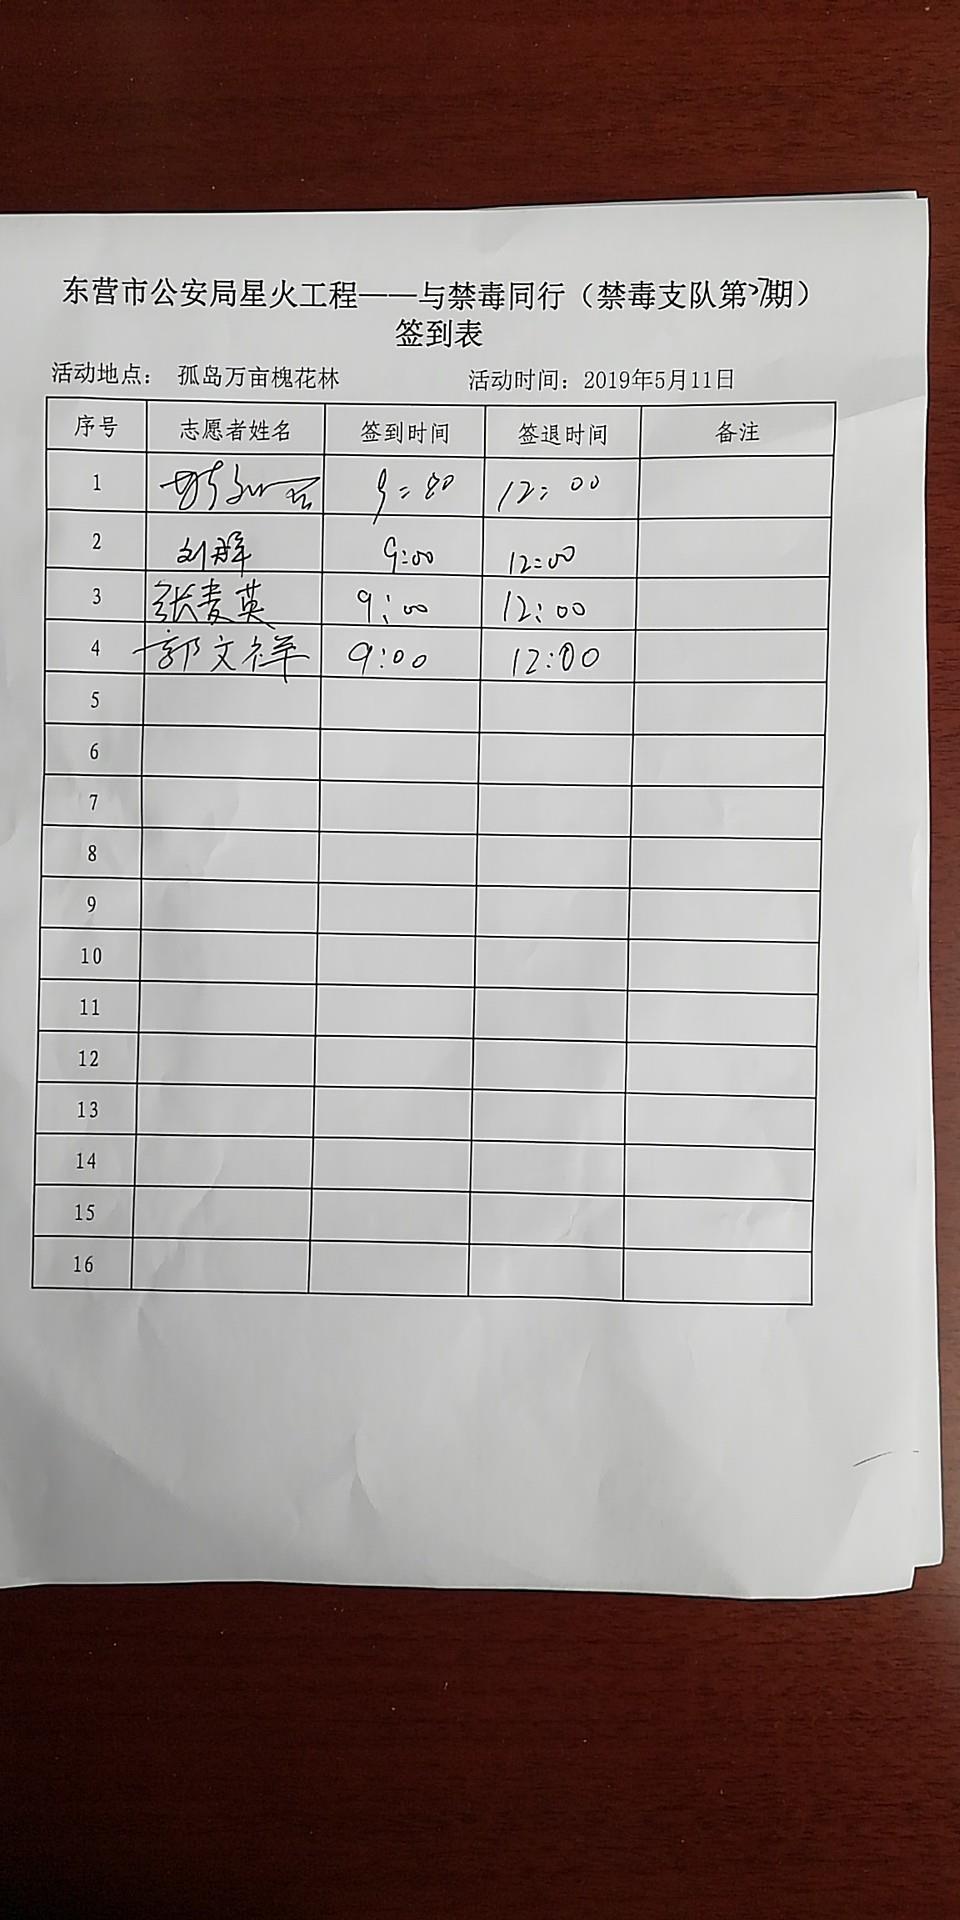 东营市公安局星火工程——与禁毒同行（禁毒支队第 期）
签到表
活动地点： 孤岛万亩槐花林 活动时间：2019年5月11日
序号 志愿者姓名 签到时间 签退时间 备注
1 9:00 12:00
2 刘 9:00 12:00
3 张麦英 9:00 12:00
4 郭文祥 9:00 12:00
5
6
7
8
9
10
11
12
13
14
15
16